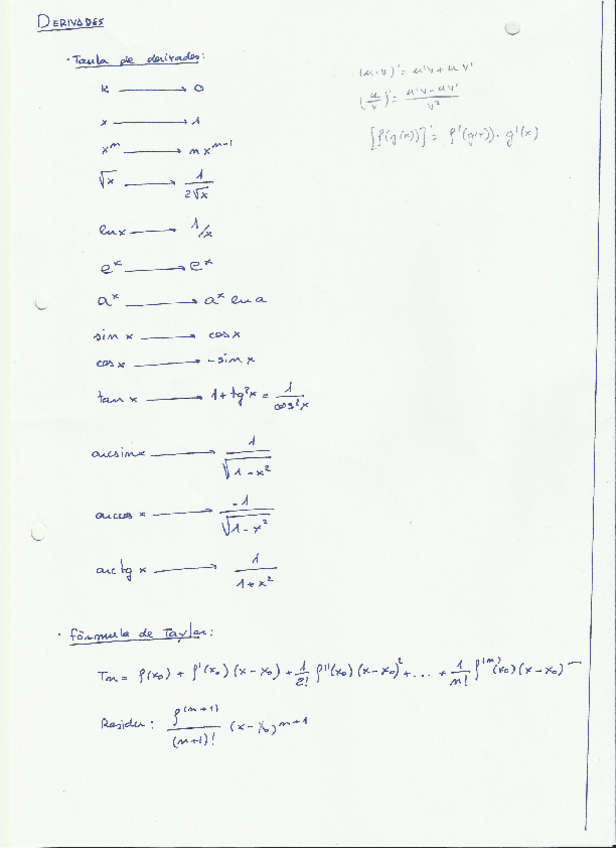 DERIVADES
· Taula de derivades:
k → 0
x → 1
xⁿ → n xⁿ⁻¹
√x → 1/(2√x)
ln x → 1/x
eˣ → eˣ
aˣ → aˣ ln a
sin x → cos x
cos x → -sin x
tan x → 1 + tg²x = 1/cos²x
arcsin x → 1/√(1-x²)
arccos x → -1/√(1-x²)
arctg x → 1/(1+x²)
(u·v)' = u'v + u v'
(u/v)' = (u'v - uv')/v²
[f(g(x))]' = f'(g(x))·g'(x)
· Fórmula de Taylor:
Tn = f(x₀) + f'(x₀)(x-x₀) + 1/2! f''(x₀)(x-x₀)² + ... + 1/n! f⁽ⁿ⁾(x₀)(x-x₀)
Residu: f⁽ⁿ⁺¹⁾/(n+1)! (x-x₀)ⁿ⁺¹